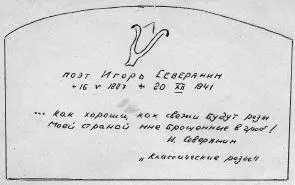 поэт Игорь Северянин
* 16 V 1887 + 20 XII 1941
... как хороши, как свежи будут розы
Моей страной мне брошенные в гроб!
И. Северянин
„Классические розы"